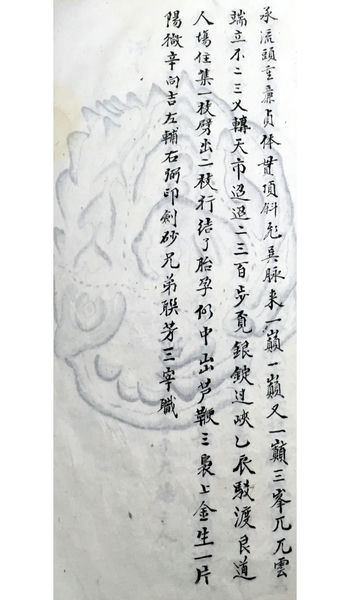 承流頭重廉貞体貫頂斜彪巽脉来一巔一巔又一巔三峯兀兀雲
端立不二三乂轉天市迢迢二三百步覓銀錠过峽乙辰駁渡艮道
人塲住集一枝劈出二枝行结了胎孕仍中出芦鞭三裊上金生一片
陽微辛向吉左輔右弼印劍砂兄弟联芳三宰職